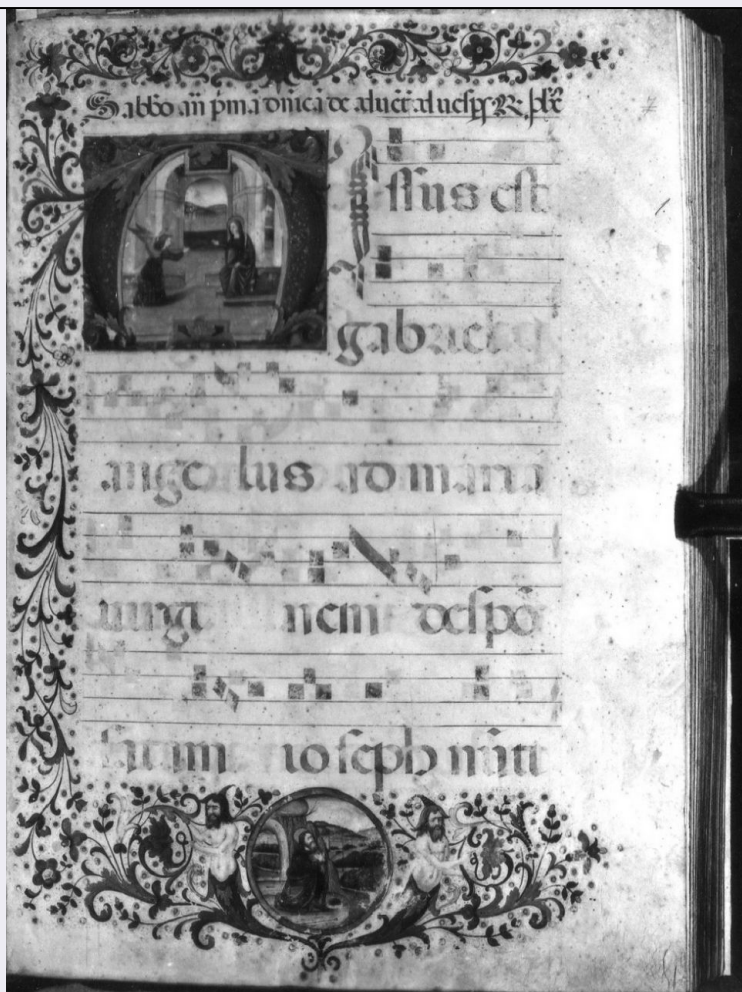 Sabbo añ pma dnica de aduēt ad uesp̄s R. plx̄
Missus est
gabriel
angelus ad maria
uirginem despō
satam ioseph nūti